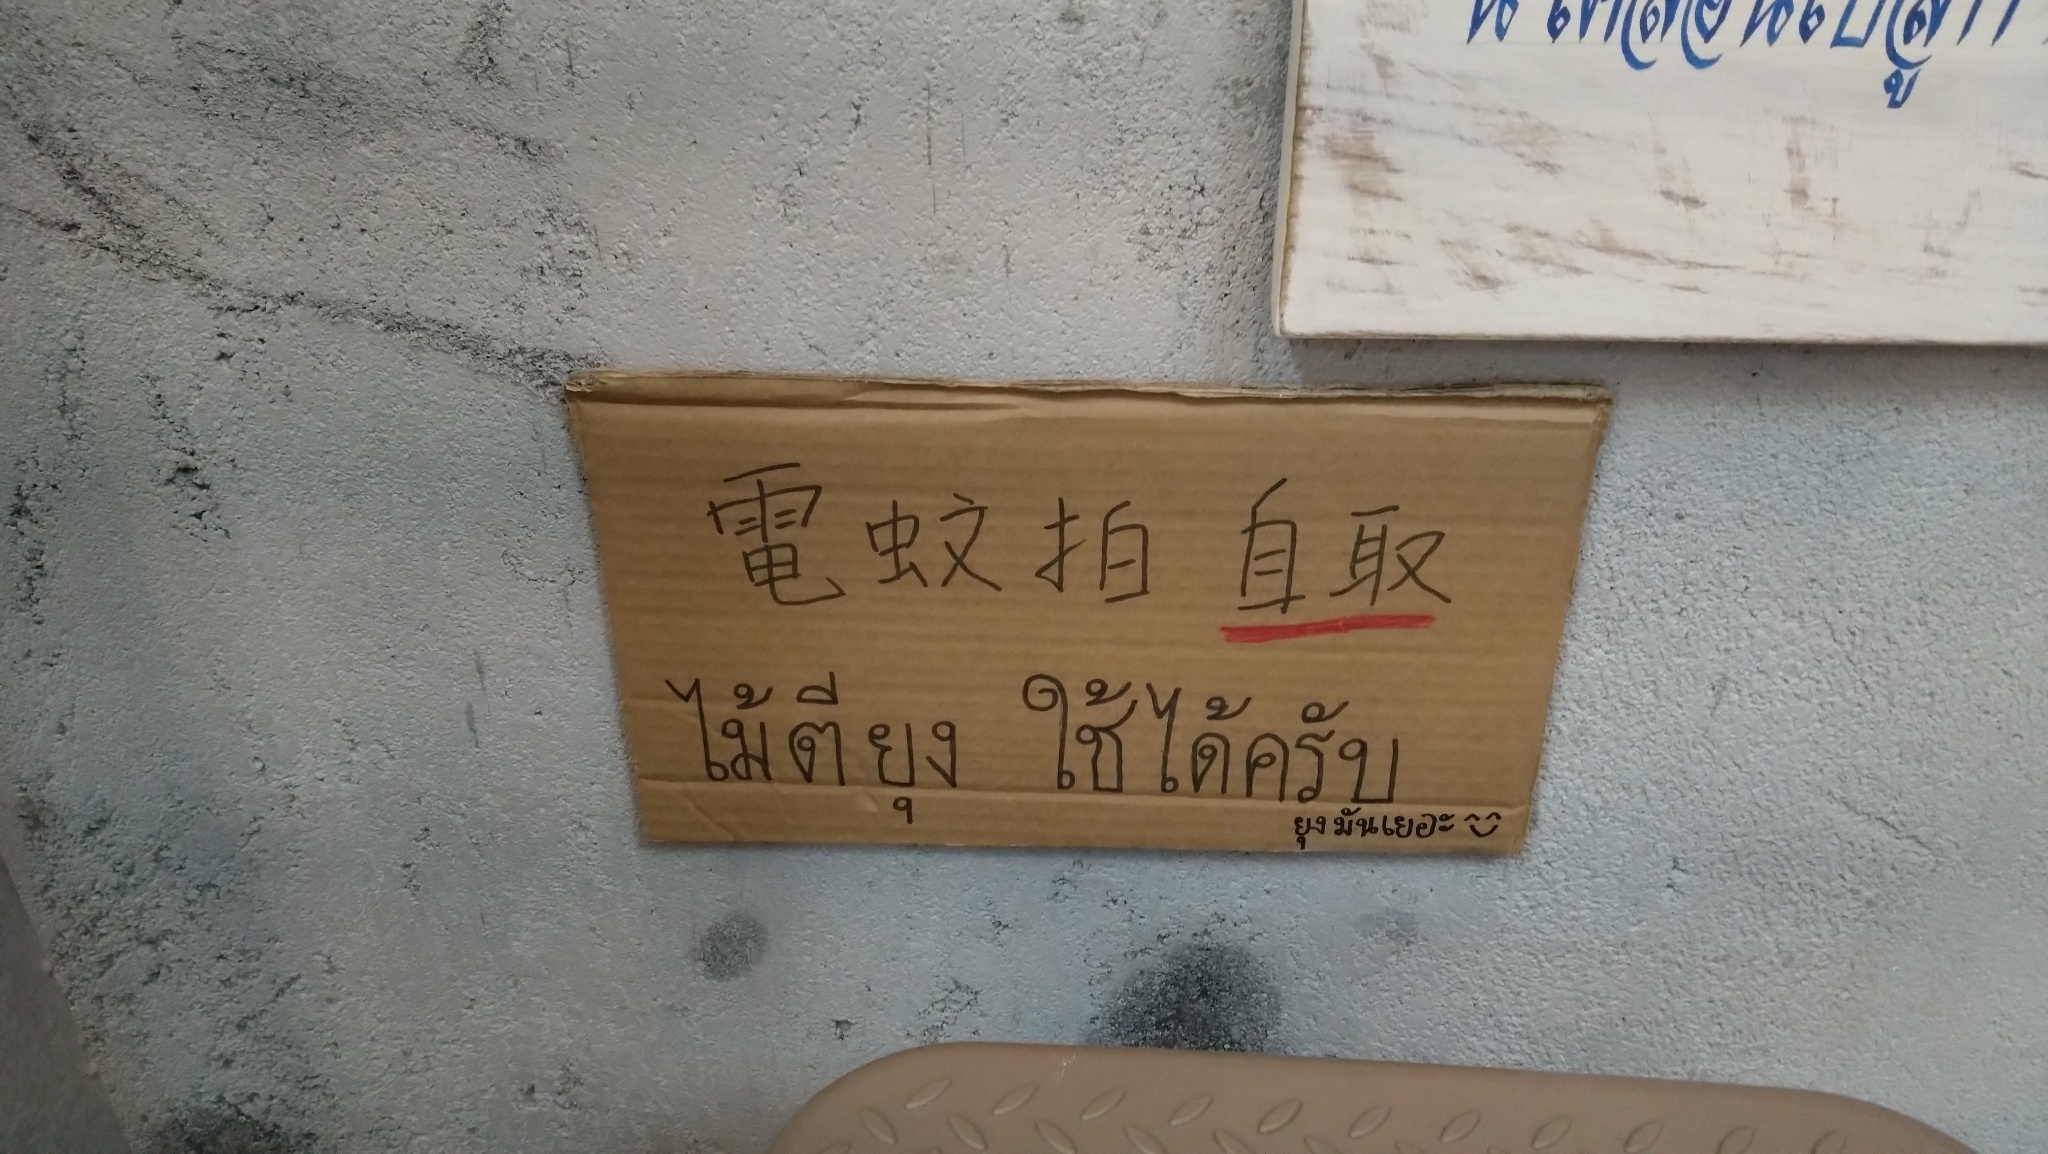 電蚊拍 自取
ไม้ตียุง ใช้ได้ครับ
ยุงมันเยอะ